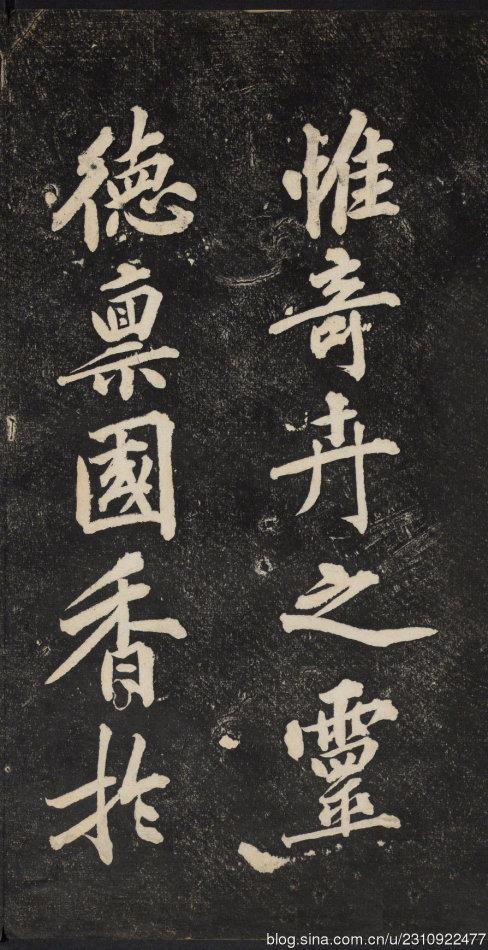 惟奇卉之靈
德禀國香於
blog.sina.com.cn/u/2310922477